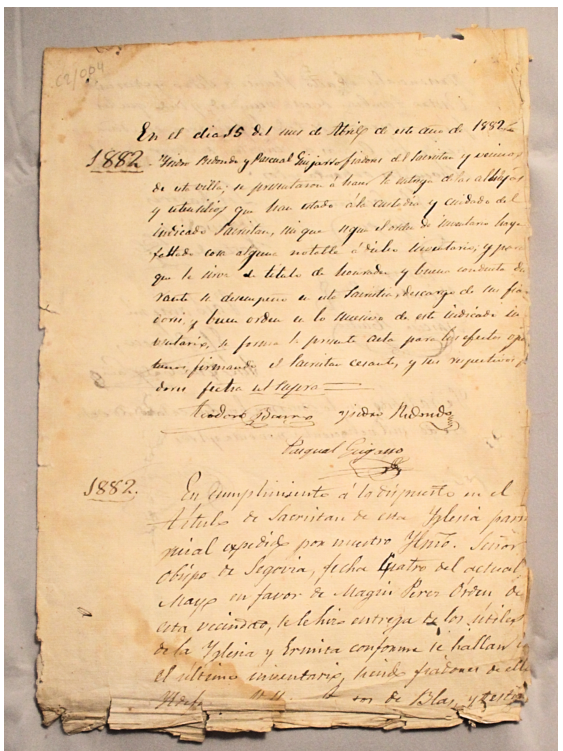 C2/004
En el dia 15 del mes de Abril de este año de 1882
1882. Ysidro Redondo y Pascual Guijarro fiadores del Sacristan y vecinos
de esta villa, se presentaron á hacer la entrega de las alhajas
y utensilios que han estado á la custodia y cuidado del
indicado Sacristan, sin que segun el orden de inventario haya
faltado cosa alguna notable á dicho inventario, y para
que le sirva de titulo de honradez y buena conducta du
rante su desempeño en esta Sacristia, descargo de sus fia
dores, y buen orden en lo sucesivo de este indicado in
ventario, se forma la presente acta para los efectos opor
tunos, firmando el Sacristan cesante, y sus respectivos fia
dores fecha ut supra
Teodoro Ysidro Redondo
Pascual Guijarro
1882. En cumplimiento á lo dispuesto en el
titulo de Sacristan de esta Yglesia parro
quial expedido por nuestro Yltmo. Señor
Obispo de Segovia, fecha Cuatro del actual
Mayo en favor de Magin Perez Orden de
esta vecindad, se le hizo entrega de los útiles
de la Yglesia y Ermita conforme se hallan en
el último inventario, siendo fiadores de ello
de Blas y